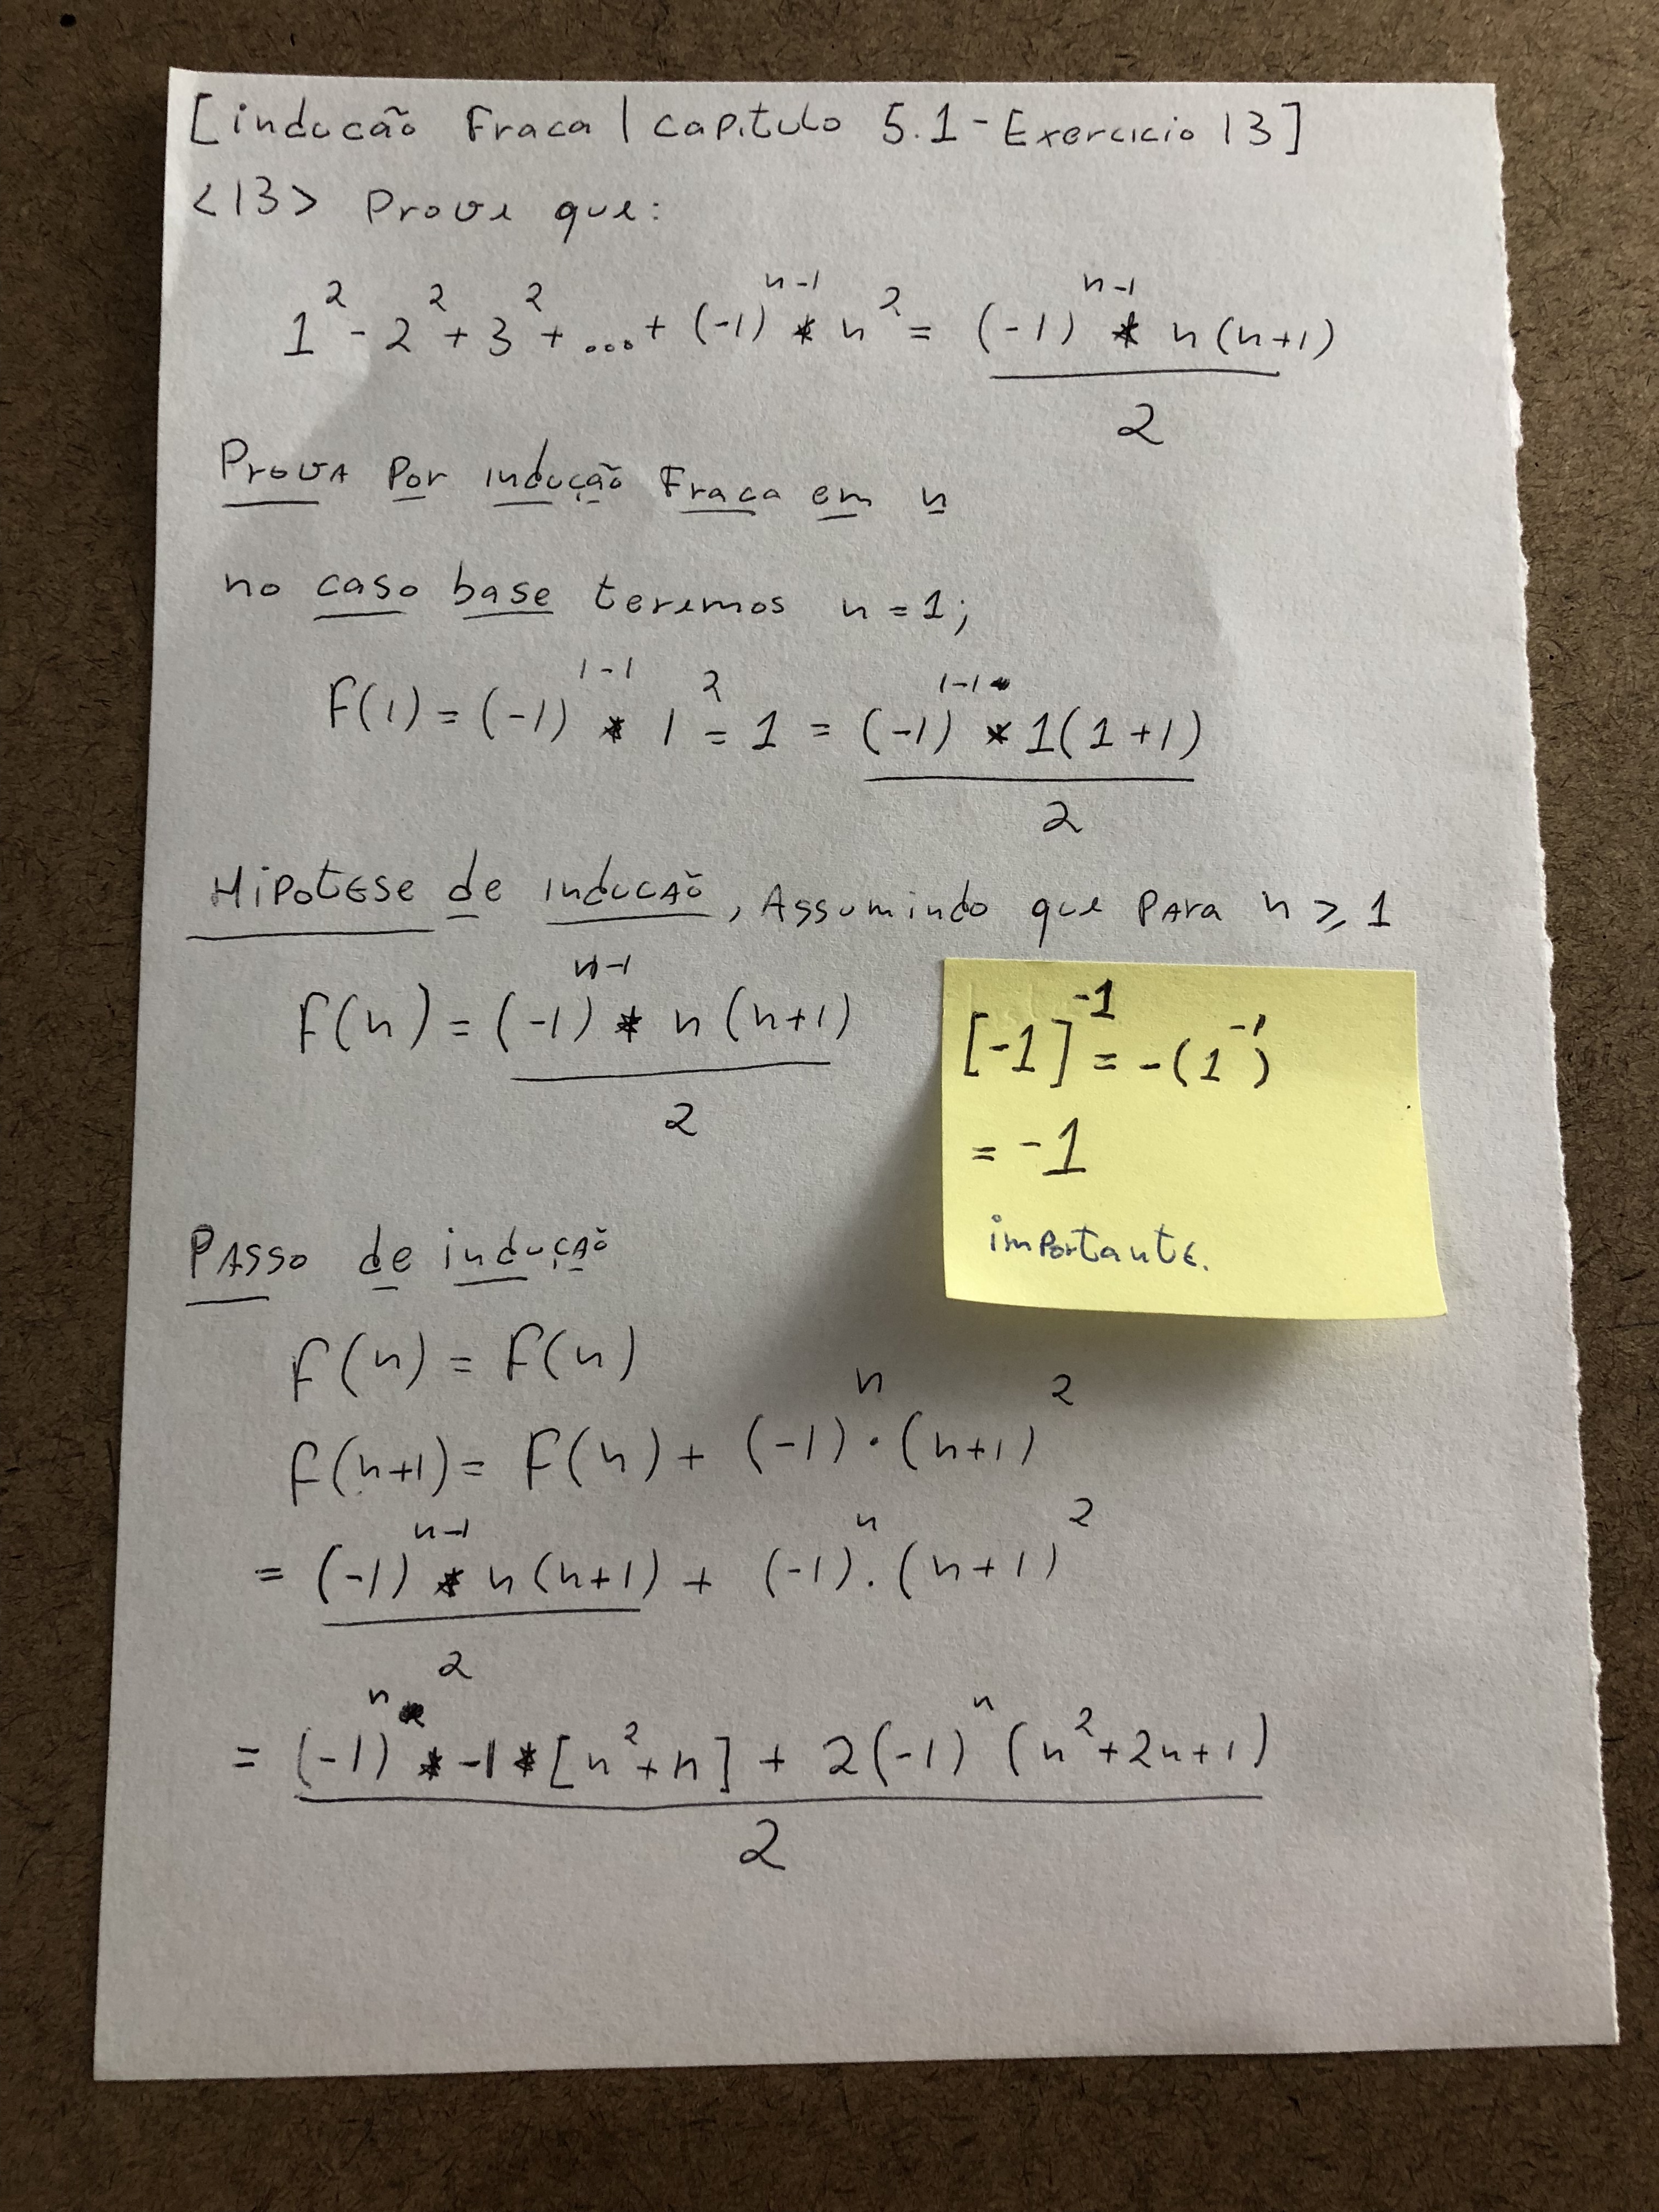 [indução Fraca | capitulo 5.1 - Exercicio 13]
<13> Prove que:
1² - 2² + 3² + ... + (-1)ⁿ⁻¹ * n² = (-1)ⁿ⁻¹ * n(n+1)
2
Prova Por indução Fraca em n
no caso base teremos n = 1;
F(1) = (-1)¹⁻¹ * 1² = 1 = (-1)¹⁻¹ * 1(1+1)
2
Hipotese de indução, Assumindo que Para n ⩾ 1
F(n) = (-1)ⁿ⁻¹ * n(n+1)
2
[-1]⁻¹ = -(1⁻¹)
= -1
importante.
Passo de indução
F(n) = F(n)
F(n+1) = F(n) + (-1)ⁿ · (n+1)²
= (-1)ⁿ⁻¹ * n(n+1) + (-1)ⁿ · (n+1)²
2
= (-1)ⁿ * -1 * [n² + n] + 2(-1)ⁿ (n² + 2n + 1)
2